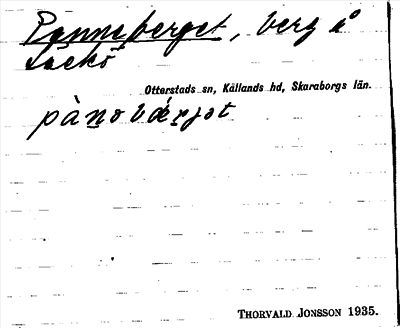 Panneberget, berg å
Läckö
Otterstads sn, Kållands hd, Skaraborgs län.
pànobǽrjət
THORVALD JONSSON 1935.